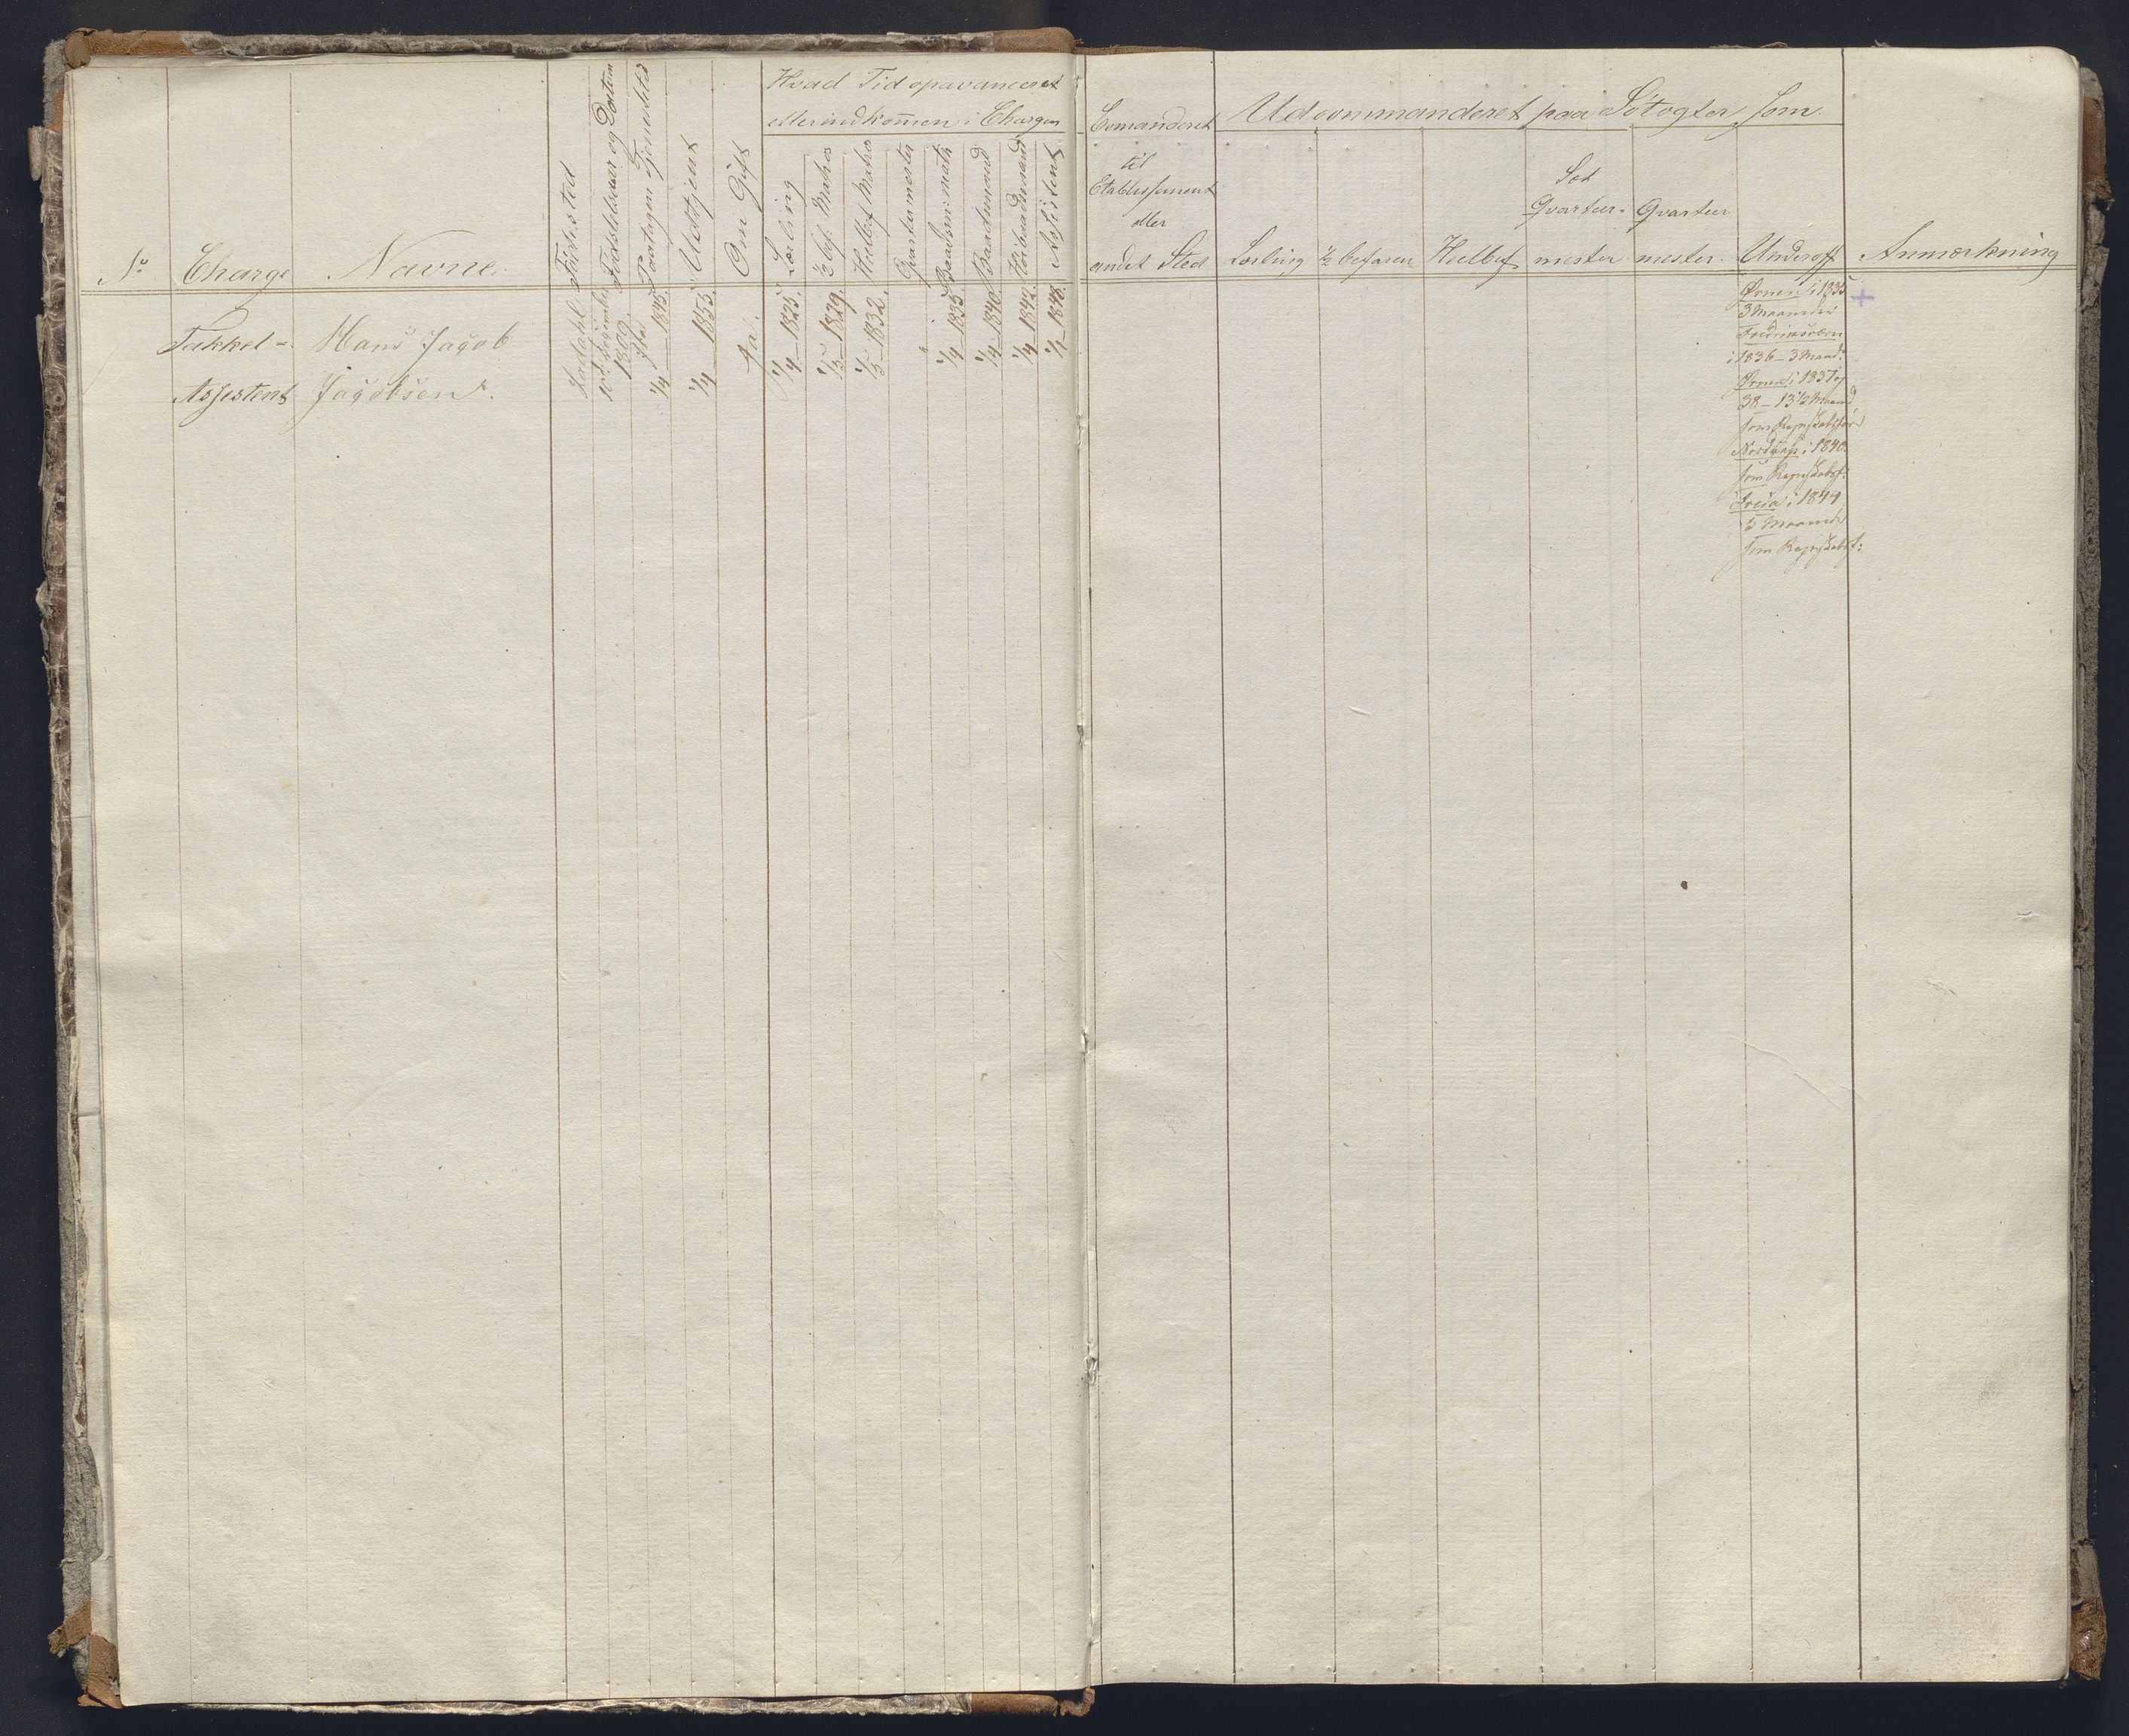 No
Charge
Navne
Födested
Födselsaar og Datum
Paatagen Tjenestetid
Udtjent
Om Gift
Hvad Tid opavanceret
eller indkom̄en i Chargen
Lærling
½ bef. Matros
Heelbef Matros
Qvarteermester
Baadsm: math
Baadsmand
Höibaadsmand
Assistent
Comanderet
til
Etablissement
eller
andet Sted
Udcommanderet paa Sötogter som
Lærling
½ befaren
Heelbef
Sod
Qvarteer-
mester
Qvarteer
mester
Underoff
Anmærkning
Takkel-
Assistent
Hans Jacob
Jacobsen
10de
1809
fra
1/4 1845
1/4 1853
Ja.
1/4 1823.
1/5 1829.
1/5 1832.
"
1/4 1835
1/4 1840.
1/4 1842
1/1 1848.
Ørnen i 1835
3 Maaneder
Fredriksværn
i 1836 - 3 Maad:
Ørnen i 1837 og
38 - 13½ Maaned
som Regnskabsförer
i 1840
som Regnskabsf:
Freia i 1844
5 Maaneder
som Regnskabsf:
+